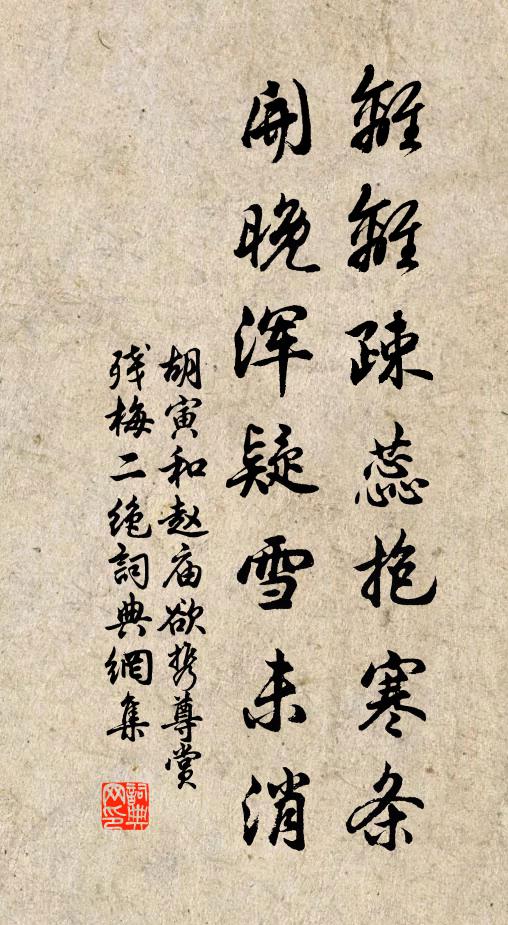 離離疎蕊抱寒条
開晚浑疑雪未消
胡寅和赵庙欲携尊赏
残梅二绝詞典網集
詞典
网印